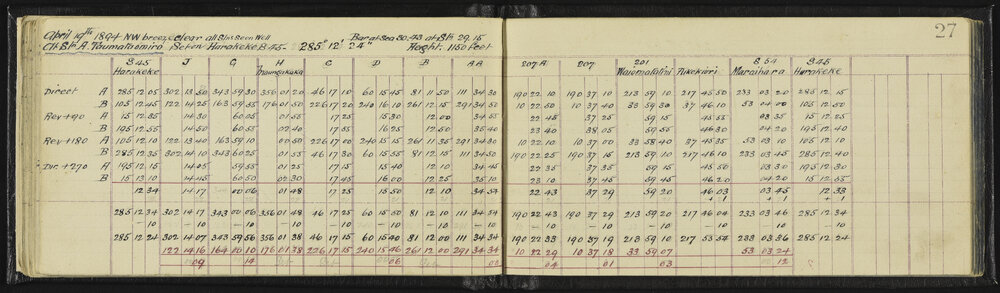 27
April 19th 1894 NW breeze clear all Stns Seen Well Bar at Sea 30.43 at Stn 29.15
At Stn A. Taumataomiro Set on Harakeke B.45 = 285° 12' 24" Height. 1150 feet
S 45 Harakeke J G H C D B AA 207 A 207 201 Waiomatatini Aikekiori S 64 Maraihara S 45 Harakeke
Direct A 285 12 05 302 13 50 343 59 30 356 01 20 46 17 10 60 15 40 81 11 50 111 34 30 190 22 10 190 37 10 213 59 10 217 45 50 233 03 20 285 12 15
B 105 12 45 122 14 25 163 59 55 176 01 50 226 17 20 240 16 10 261 12 15 291 34 50 10 22 50 10 37 40 33 59 30 37 46 10 53 04 00 105 12 50
Rev + 90 A 15 12 35 14 30 60 05 01 55 17 25 15 30 12 00 34 55 22 45 37 25 59 15 45 55 03 35 15 12 25
B 195 12 55 14 50 60 55 02 40 17 55 16 25 12 50 35 40 23 40 38 05 59 55 46 30 04 20 195 12 40
Rev + 180 A 105 12 10 122 13 40 163 59 10 00 50 226 17 00 240 15 15 261 11 35 291 34 30 10 22 10 10 37 00 33 58 40 37 45 35 53 03 10 105 12 10
B 285 12 35 302 14 10 343 60 25 01 55 46 17 30 60 15 55 81 12 15 111 34 50 190 22 25 190 37 15 213 59 10 217 46 10 233 03 45 285 12 40
Dir + 270 A 195 12 15 14 05 59 55 01 25 17 15 15 40 12 10 34 45 22 35 37 35 59 15 45 50 03 30 195 12 30
B 15 13 10 14 45 60 50 02 30 17 45 16 00 12 25 35 10 23 10 37 45 59 45 46 20 04 20 15 12 55
12 34 14 17 00 06 01 48 17 25 15 50 12 10 34 54 22 43 37 29 59 20 46 03 03 45 12 33
+ 1 + 1
285 12 34 302 14 17 343 00 06 356 01 48 46 17 25 60 15 50 81 12 10 111 34 54 190 22 43 190 37 29 213 59 20 217 46 04 233 03 46 285 12 34
10 - 10 - 10 - 10 - 10 - 10 - 10 - 10 - 10 - 10 - 10 - 10 - 10 - 10
285 12 24 302 14 07 343 59 56 356 01 38 46 17 15 60 15 40 81 12 00 111 34 44 190 22 33 190 37 19 213 59 10 217 45 54 233 03 36 285 12 24
122 14 16 164 00 10 176 01 38 226 17 15 240 15 46 261 12 00 291 34 34 10 22 29 10 37 18 33 59 07 53 03 24
09 14 06 04 01 03 12